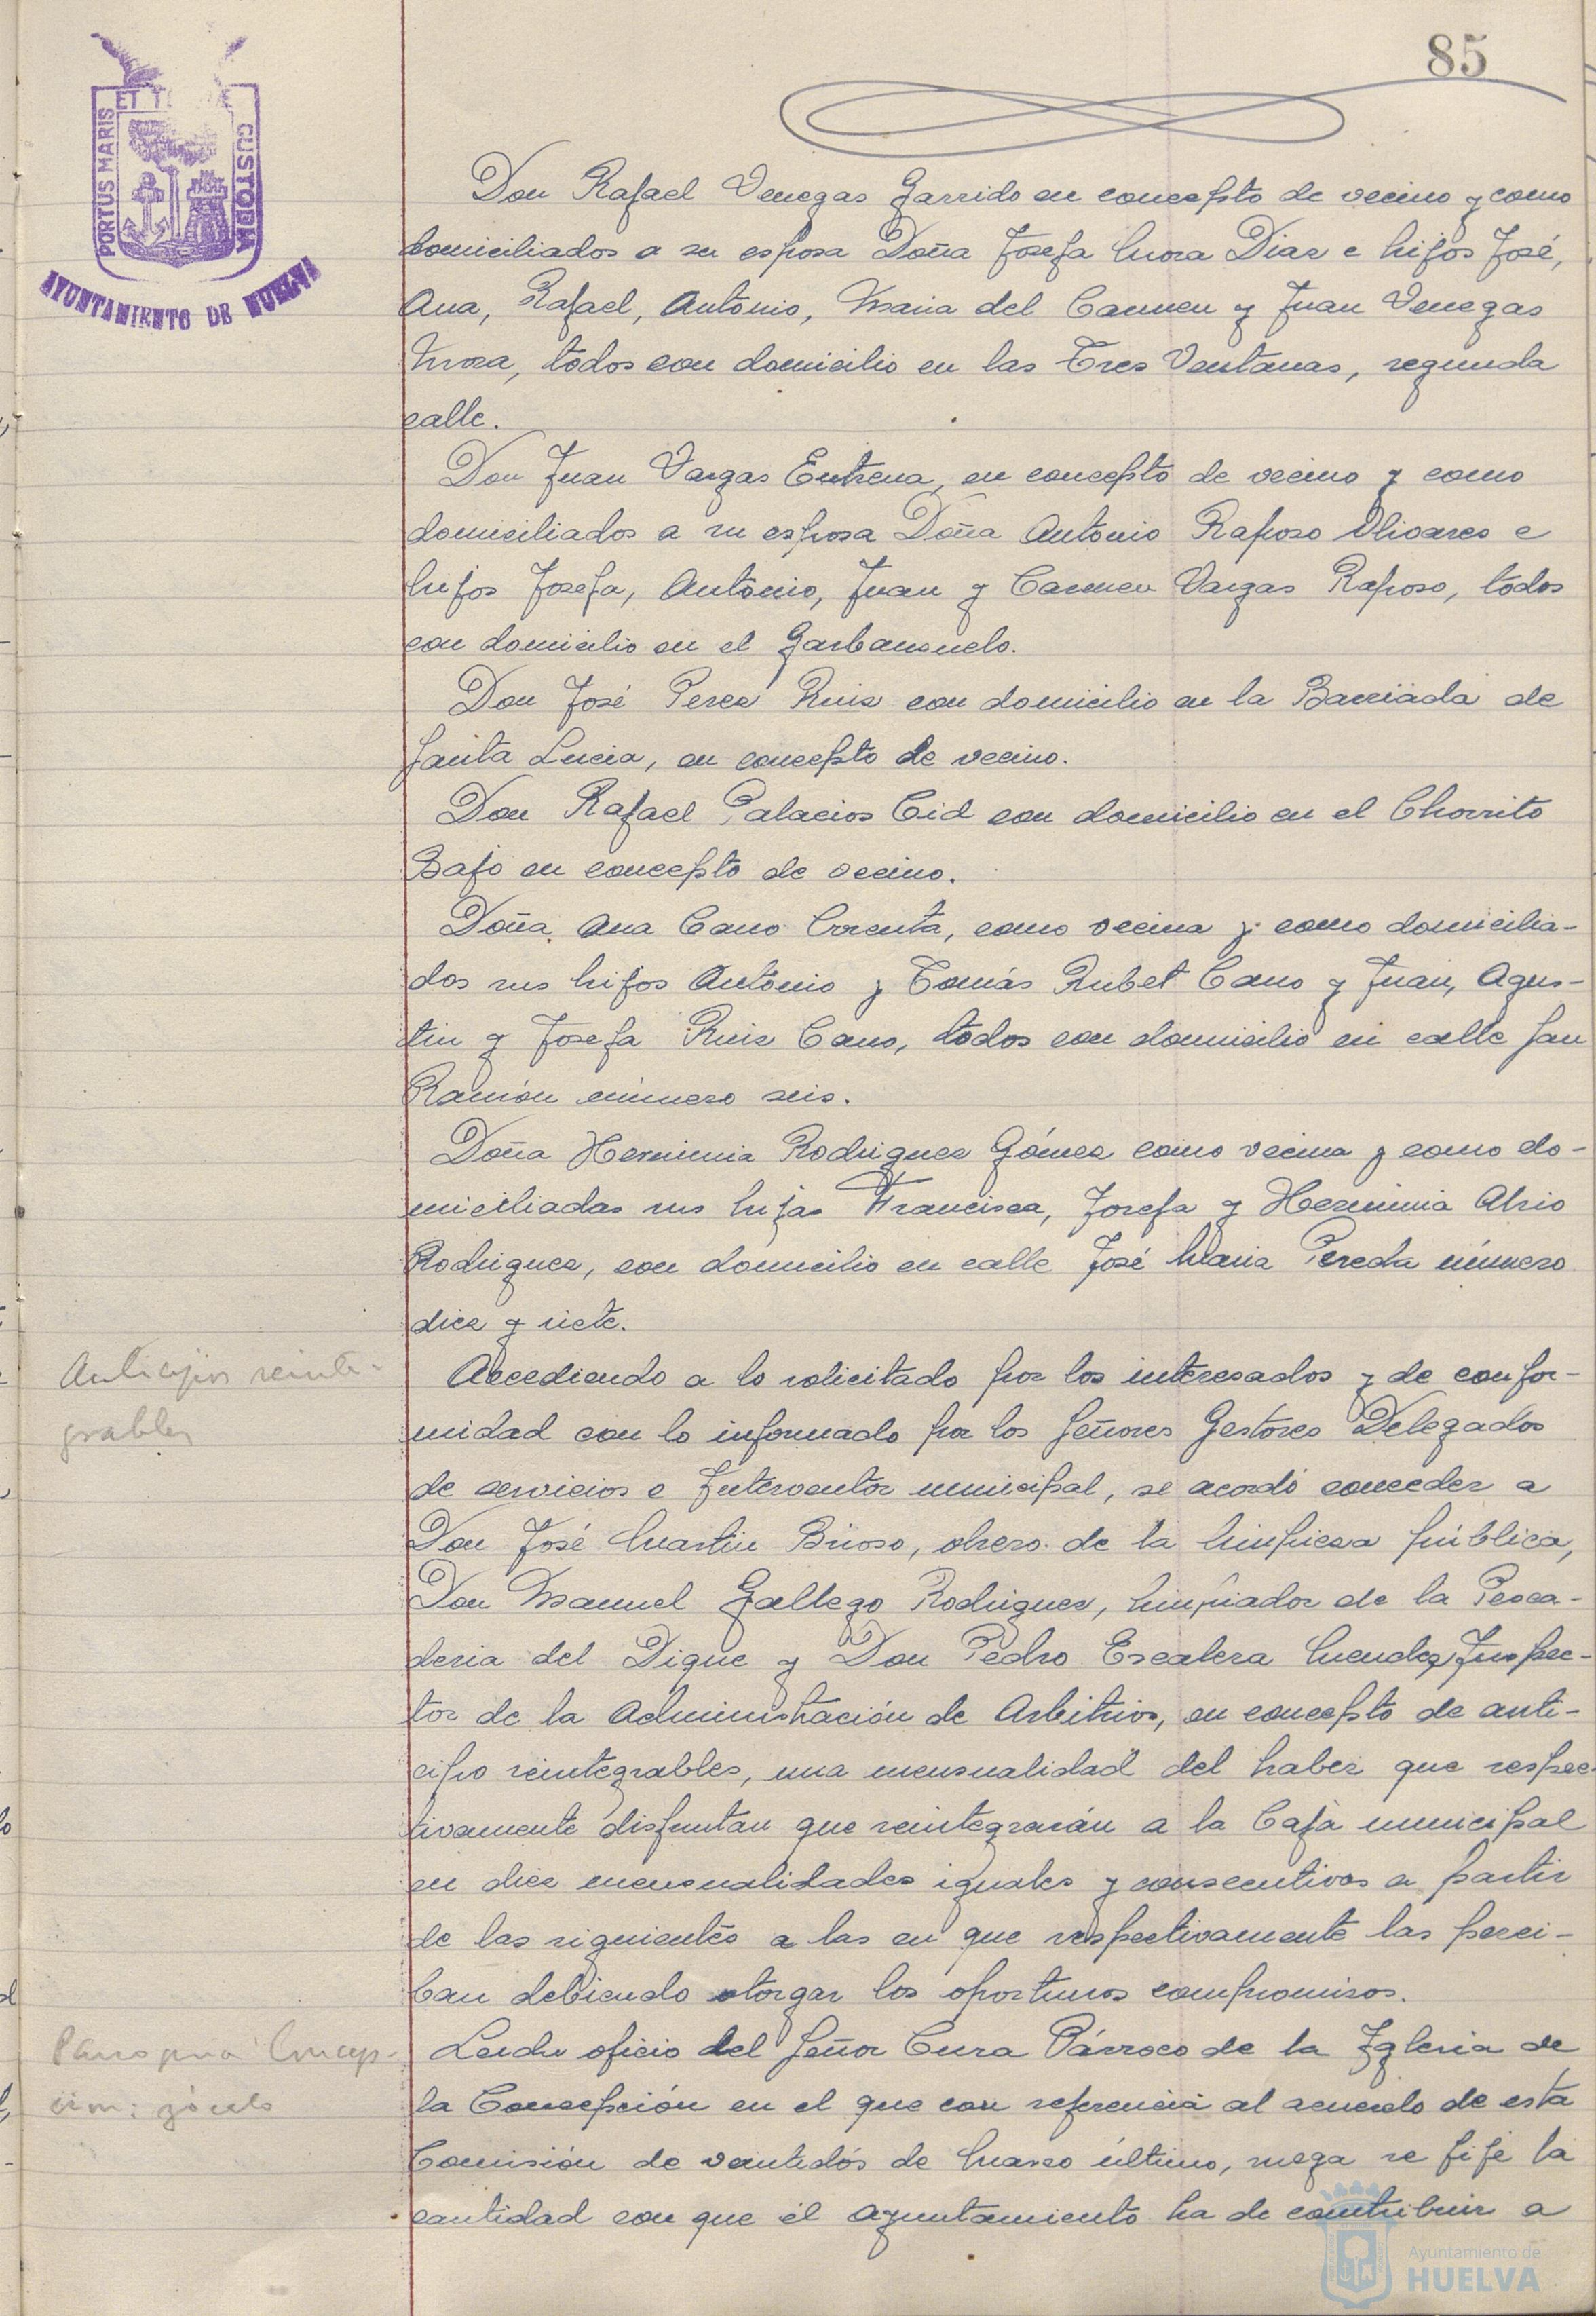 85
PORTUS MARIS ET T E CUSTODIA
AYUNTAMIENTO DE HUELVA
Don Rafael Venegas Garrido en concepto de vecino y como
domiciliados a su esposa Doña Josefa Mora Diaz e hijos José,
Ana, Rafael, Antonio, Maria del Carmen y Juan Venegas
Mora, todos con domicilio en las Tres Ventanas, segunda
calle.
Don Juan Vargas Entrena, en concepto de vecino y como
domiciliados a su esposa Doña Antonio Raposo Olivares e
hijos Josefa, Antonio, Juan y Carmen Vargas Raposo, todos
con domicilio en el Garbanzuelo.
Don José Perez Ruiz con domicilio en la Barriada de
Santa Lucia, en concepto de vecino.
Don Rafael Palacios Cid con domicilio en el Chorrito
Bajo en concepto de vecino.
Doña Ana Cano, como vecina y como domicilia-
dos sus hijos Antonio y Tomás Rubet Cano y Juan, Agus-
tin y Josefa Ruiz Cano, todos con domicilio en calle San
Ramón número seis.
Doña Herminia Rodriguez Gómez como vecina y como do-
miciliadas sus hijas Francisca, Josefa y Herminia
Rodriguez, con domicilio en calle José Maria Pereda número
diez y siete.
Anticipos reinte-
grables
Accediendo a lo solicitado por los interesados y de confor-
midad con lo informado por los Señores Gestores Delegados
de servicios e Interventor municipal, se acordó conceder a
Don José Martin Brioso, obrero de la limpieza pública,
Don Manuel Gallego Rodriguez, limpiador de la Pesca-
deria del Dique y Don Pedro Escalera Mendez, Inspec-
tor de la Administración de Arbitrios, en concepto de anti-
cipo reintegrables, una mensualidad del haber que respec-
tivamente disfrutan que reintegrarán a la Caja municipal
en diez mensualidades iguales y consecutivas a partir
de las siguientes a las en que respectivamente las perci-
ban debiendo otorgar los oportunos compromisos.
Parroquia Concep-
cion: zócalo
Leido oficio del Señor Cura Párroco de la Iglesia de
la Concepción en el que con referencia al acuerdo de esta
Comisión de veintidós de Marzo último, ruega se fije la
cantidad con que el Ayuntamiento ha de contribuir a
Ayuntamiento de
HUELVA